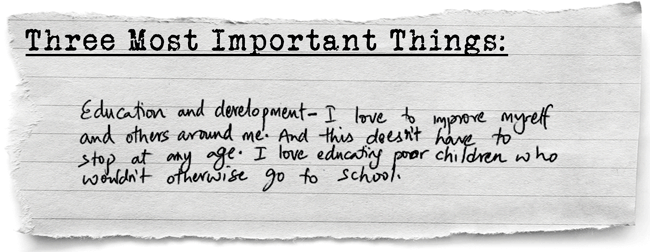 Three Most Important Things:
Education and development- I love to improve myself
and others around me. And this doesn't have to
stop at any age. I love educating poor children who
wouldn't otherwise go to school.